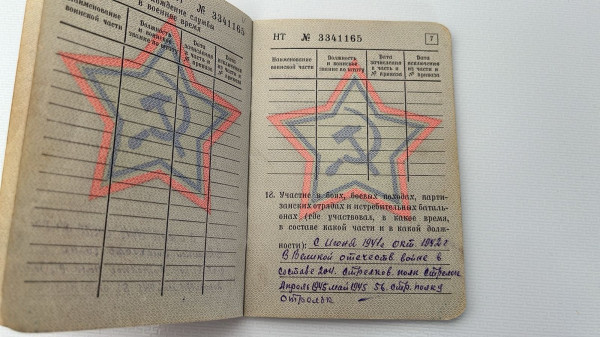 прохождение службы
в военное время
№ 3341165
Наименование воинской части
Должность и воинское звание по штату
Дата зачисления в часть и № приказа
Дата исключения из части и № приказа
НТ № 3341165
7
Наименование воинской части
Должность и воинское звание по штату
Дата зачисления в часть и № приказа
Дата исключения из части и № приказа
18. Участие в боях, боевых походах, парти-
занских отрядах и истребительных баталь-
онах (где участвовал, в какое время,
в составе какой части и в какой долж-
ности): С Июня 1941г окт. 1942г
В Великой отечеств войне в
составе 204. стрелков. полк стрелок
Апрель 1945 май 1945 56. стр. полку
стрелок